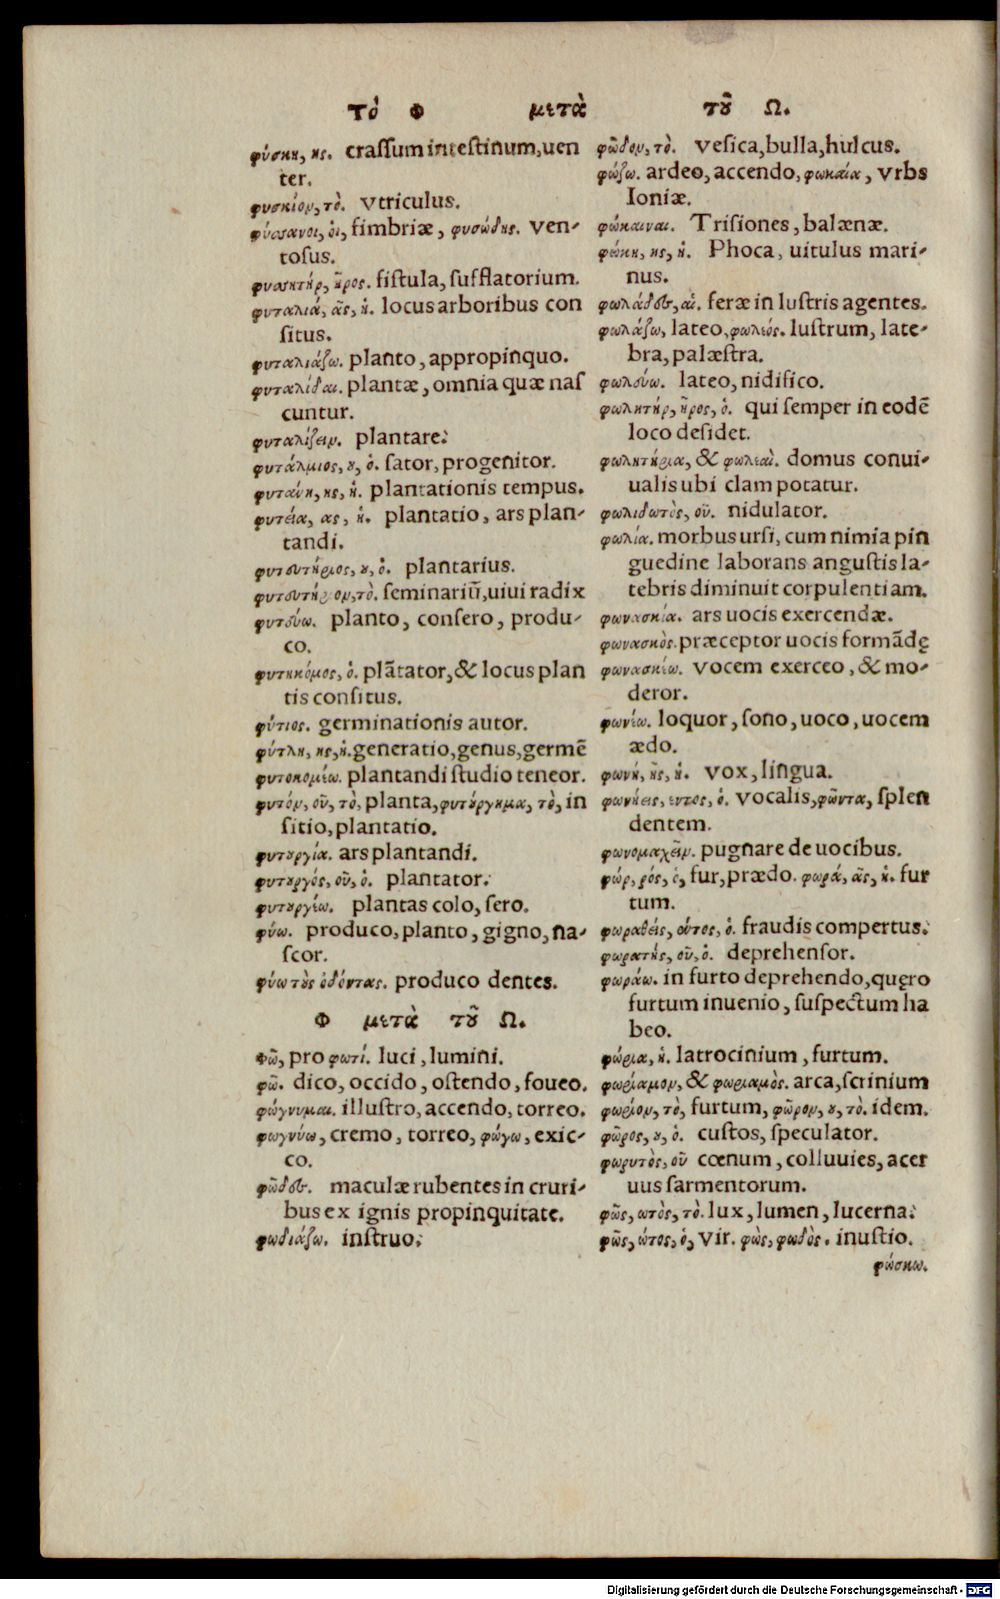 Τὸ Φ μετὰ τοῦ Ω.
φύσκη, ης. crassum intestinum, uen
ter.
φυσκίον, τὸ. vtriculus.
φύσανοι, οἱ, fimbriæ, φυσώδης. ven-
tosus.
φυσητήρ, ῆρος. fistula, sufflatorium.
φυταλιά, ᾶς, ἡ. locus arboribus con
situs.
φυταλιάζω. planto, appropinquo.
φυταλίδαι. plantæ, omnia quæ nas
cuntur.
φυταλίζειν. plantare.
φυτάλμιος, ου, ὁ. sator, progenitor.
φυτάνη, ης, ἡ. plantationis tempus.
φυτεία, ας, ἡ. plantatio, ars plan-
tandi.
φυτευτήριος, ου, ὁ. plantarius.
φυτευτήριον, τὸ. seminariū, uiui radix
φυτεύω. planto, consero, produ-
co.
φυτηκόμος, ὁ. plātator, & locus plan
tis consitus.
φύτιος. germinationis autor.
φύτλη, ης, ἡ. generatio, genus, germē
φυτοκομέω. plantandi studio teneor.
φυτόν, οῦ, τὸ, planta, φυτούργημα, τὸ, in
sitio, plantatio.
φυτουργία. ars plantandi.
φυτουργός, οῦ, ὁ. plantator.
φυτουργέω. plantas colo, sero.
φύω. produco, planto, gigno, na-
scor.
φύω τοὺς ὀδόντας. produco dentes.
Φ μετὰ τοῦ Ω.
Φῶ, pro φωτί. luci, lumini.
φῶ. dico, occido, ostendo, foueo.
φώγνυμαι. illustro, accendo, torreo.
φωγνύω, cremo, torreo, φώγω, exic-
co.
φῶδες. maculæ rubentes in cruri-
bus ex ignis propinquitate.
φωδιάζω. instruo.
φῶδον, τὸ. vesica, bulla, hulcus.
φώζω. ardeo, accendo, φωκαία, vrbs
Ioniæ.
φώκαιναι. Trisiones, balænæ.
φώκη, ης, ἡ. Phoca, uitulus mari-
nus.
φωλάδες, αἱ. feræ in lustris agentes.
φωλάζω, lateo, φωλεός. lustrum, late-
bra, palæstra.
φωλεύω. lateo, nidifico.
φωλητήρ, ῆρος, ὁ. qui semper in eodē
loco desidet.
φωλητήρια, & φωλεαί. domus conui-
ualis ubi clam potatur.
φωλιδωτὸς, οῦ. nidulator.
φωλία. morbus ursi, cum nimia pin
guedine laborans angustis la-
tebris diminuit corpulentiam.
φωνασκία. ars uocis exercendæ.
φωνασκὸς. præceptor uocis formādę
φωνασκέω. vocem exerceo, & mo-
deror.
φωνέω. loquor, sono, uoco, uocem
ædo.
φωνή, ῆς, ἡ. vox, lingua.
φωνήεις, εντος, ὁ. vocalis, φῶντα, splen
dentem.
φωνομαχεῖν. pugnare de uocibus.
φώρ, ρός, ὁ, fur, prædo. φωρά, ᾶς, ἡ. fur
tum.
φωραθείς, οῦτος, ὁ. fraudis compertus.
φωρατής, οῦ, ὁ. deprehensor.
φωράω. in furto deprehendo, quęro
furtum inuenio, suspectum ha
beo.
φώρια, ἡ. latrocinium, furtum.
φωρίαμον, & φωριαμὸς. arca, scrinium
φωρίον, τὸ, furtum, φῶρον, ου, τὸ. idem.
φῶρος, ου, ὁ. custos, speculator.
φωρυτὸς, οῦ cœnum, colluuies, acer
uus sarmentorum.
φῶς, ωτὸς, τὸ. lux, lumen, lucerna.
φῶς, ώτος, ὁ, vir. φὼς, φωδὸς. inustio.
φώσκω.
Digitalisierung gefördert durch die Deutsche Forschungsgemeinschaft - DFG